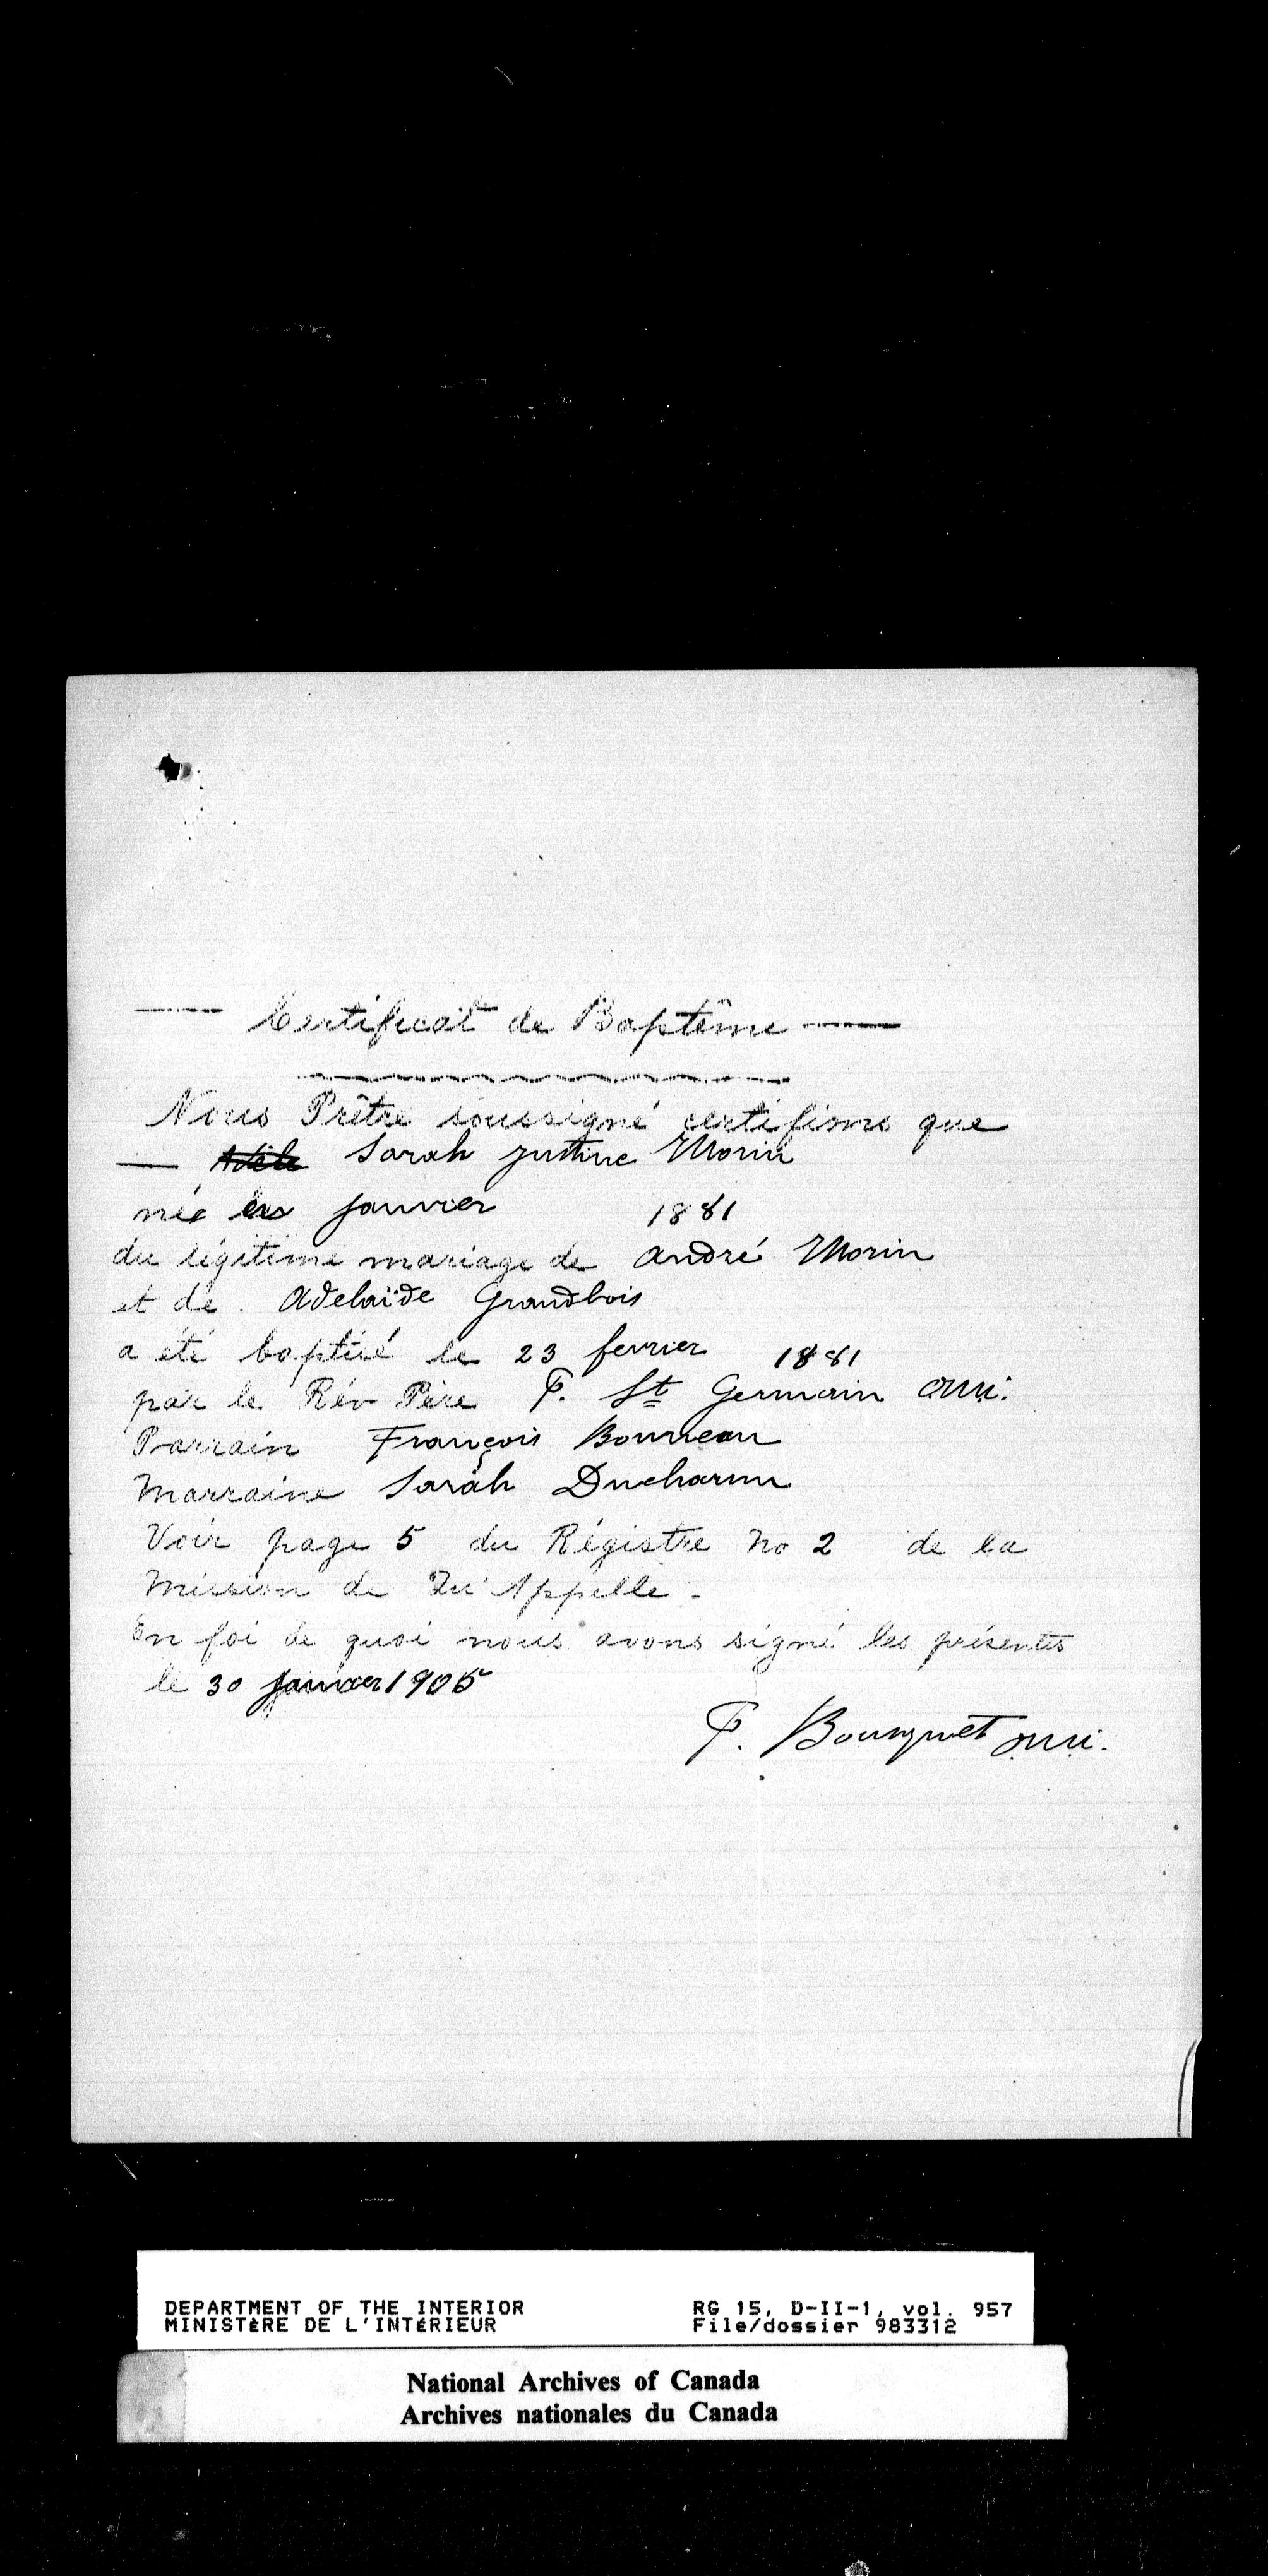 Certificat de Baptême
Nous Prêtre soussigné certifions que
Adèle Sarah Justine Morin
née en janvier 1881
du légitime mariage de André Morin
et de Adelaïde Grandbois
a été baptisé le 23 fevrier 1881
par le Rév Père P. St Germain omi.
Parrain François Bonneau
Marraine Sarah Ducharme
Voir page 5 du Régistre No 2 de la
Mission de Qu'Appelle.
En foi de quoi nous avons signé les présentes
le 30 janvier 1905
P. Bousquet omi.
DEPARTMENT OF THE INTERIOR RG 15, D-II-1, vol. 957
MINISTÈRE DE L'INTÉRIEUR File/dossier 983312
National Archives of Canada
Archives nationales du Canada